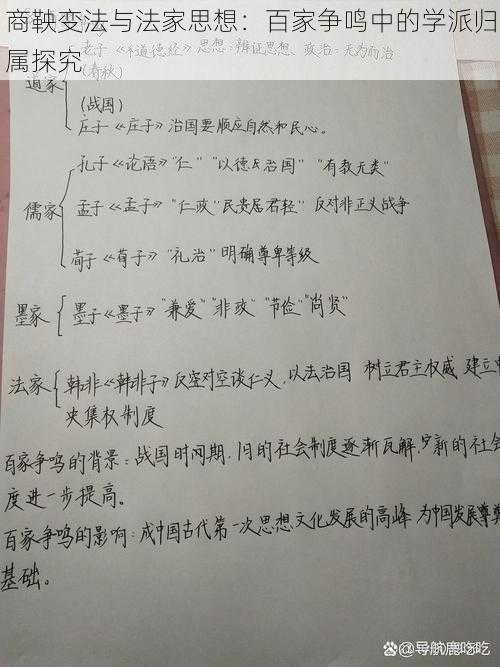 商鞅变法与法家思想：百家争鸣中的学派归
属探究
老子《道德经》思想：辩证思想、政治：无为而治
(春秋)
道家
(战国)
庄子《庄子》治国要顺应自然和民心。
孔子《论语》"仁" "以德治国" "有教无类"
儒家 孟子《孟子》"仁政" "民贵君轻" 反对非正义战争
荀子《荀子》"礼治" 明确尊卑等级
墨家 墨子《墨子》"兼爱" "非攻" "节俭" "尚贤"
法家 韩非《韩非子》反空对空谈仁义，以法治国 树立君主权威 建立中
央集权制度
百家争鸣的背景：战国时期，旧的社会制度逐渐瓦解，新的社会
度进一步提高。
百家争鸣的影响：成中国古代第一次思想文化发展的高峰 为中国发展奠
基础。
@导航鹿吃吃